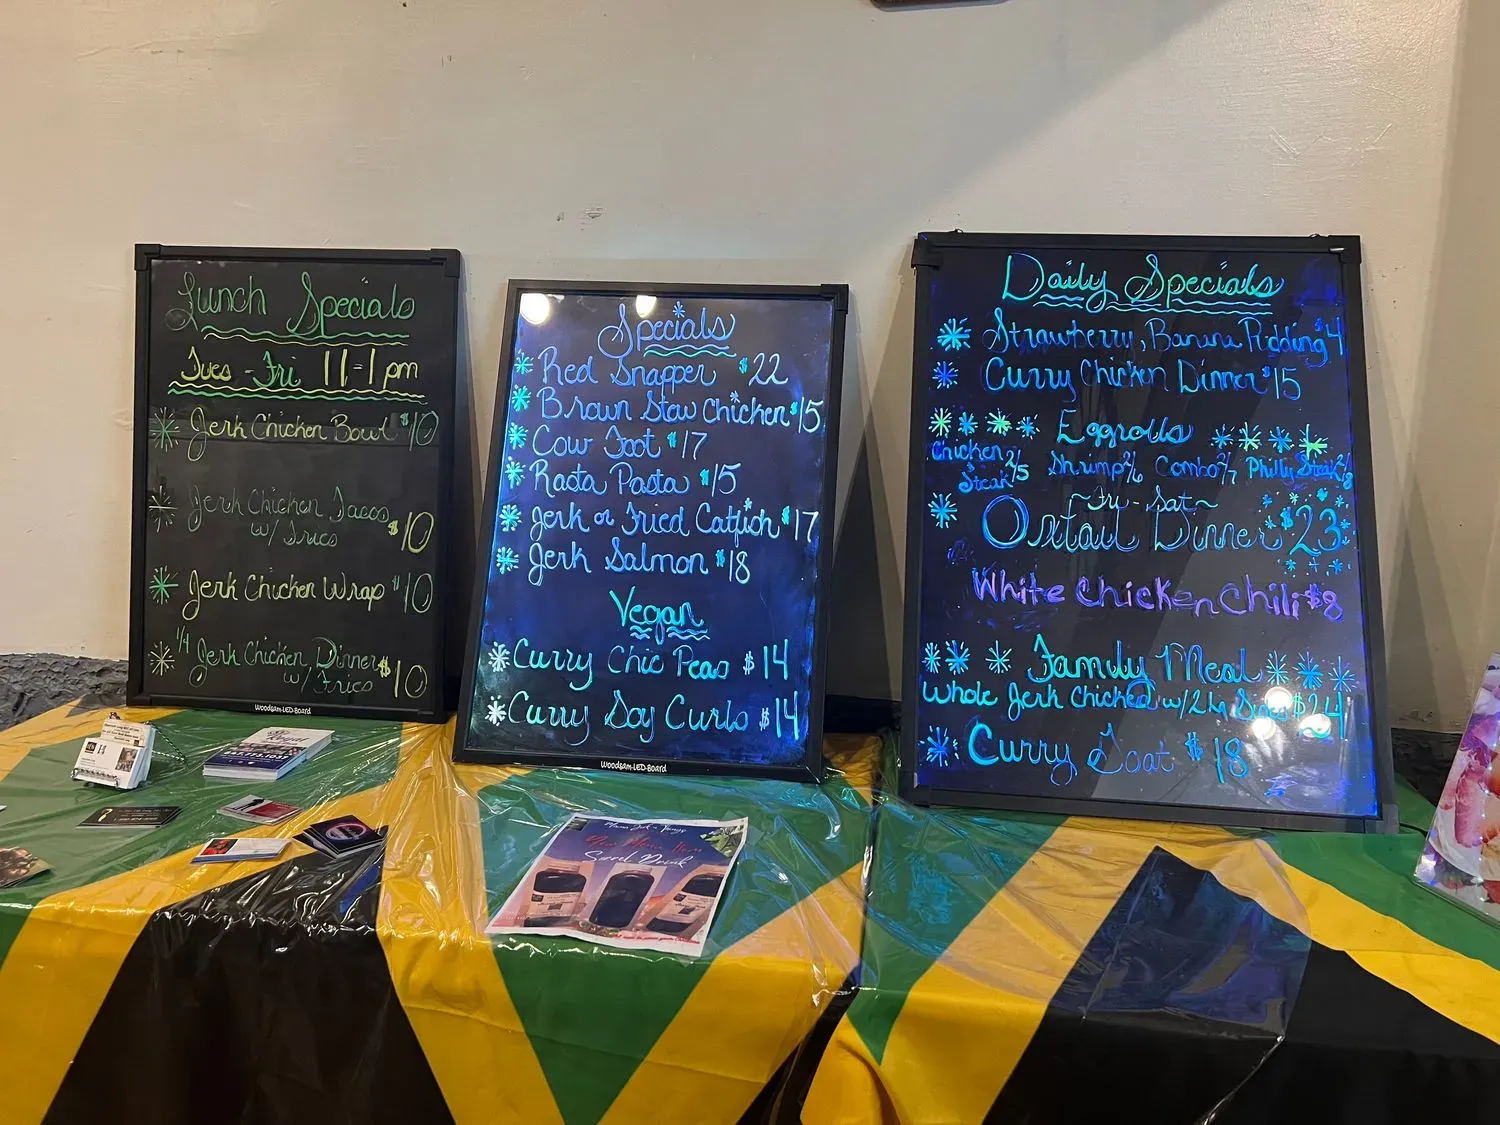 Lunch Specials
Tues - Fri 11-1pm
Jerk Chicken Bowl $10
Jerk Chicken Tacos
w/ Fries $10
Jerk Chicken Wrap $10
1/4 Jerk Chicken Dinner
w/ Fries $10
Woodsam-LED-Board
Specials
Red Snapper $22
Brown Stew Chicken $15
Cow Foot $17
Rasta Pasta $15
Jerk or Fried Catfish $17
Jerk Salmon $18
Vegan
Curry Chic Peas $14
Curry Soy Curls $14
Woodsam-LED-Board
Daily Specials
Strawberry, Banana Pudding $4
Curry Chicken Dinner $15
Eggrolls
Chicken 2/5 Shrimp 2/6 Combo 2/7 Philly Steak 2/8
Steak
~Fri - Sat~
Oxtail Dinner $23
White Chicken Chili $8
Family Meal
Whole Jerk Chicken w/2 Lg Sides $24
Curry Goat $18
New Menu Item
Sorrel Drink